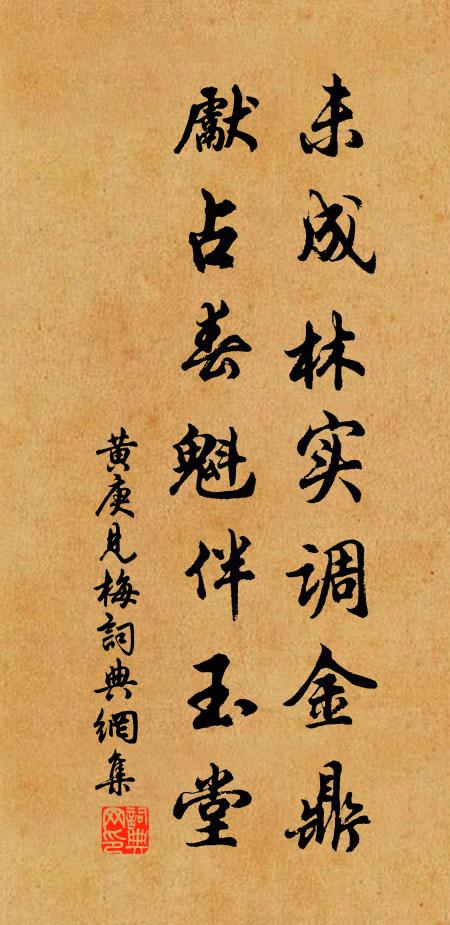 未成林实调金鼎
獻占春魁伴玉堂
黄庚见梅詞典網集
詞典网印